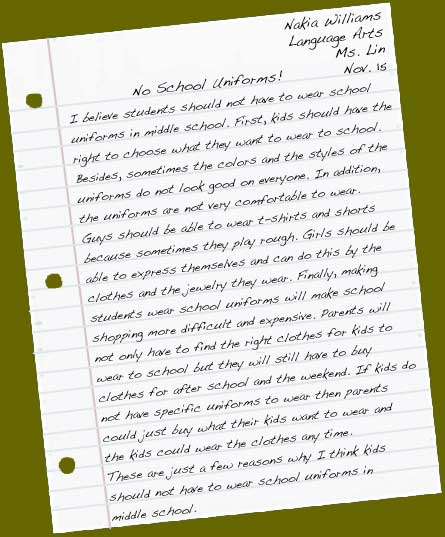 Nakia Williams
Language Arts
Ms. Lin
Nov. 15
No School Uniforms!
I believe students should not have to wear school
uniforms in middle school. First, kids should have the
right to choose what they want to wear to school.
Besides, sometimes the colors and the styles of the
uniforms do not look good on everyone. In addition,
the uniforms are not very comfortable to wear.
Guys should be able to wear t-shirts and shorts
because sometimes they play rough. Girls should be
able to express themselves and can do this by the
clothes and the jewelry they wear. Finally, making
students wear school uniforms will make school
shopping more difficult and expensive. Parents will
not only have to find the right clothes for kids to
wear to school but they will still have to buy
clothes for after school and the weekend. If kids do
not have specific uniforms to wear then parents
could just buy what their kids want to wear and
the kids could wear the clothes any time.
These are just a few reasons why I think kids
should not have to wear school uniforms in
middle school.